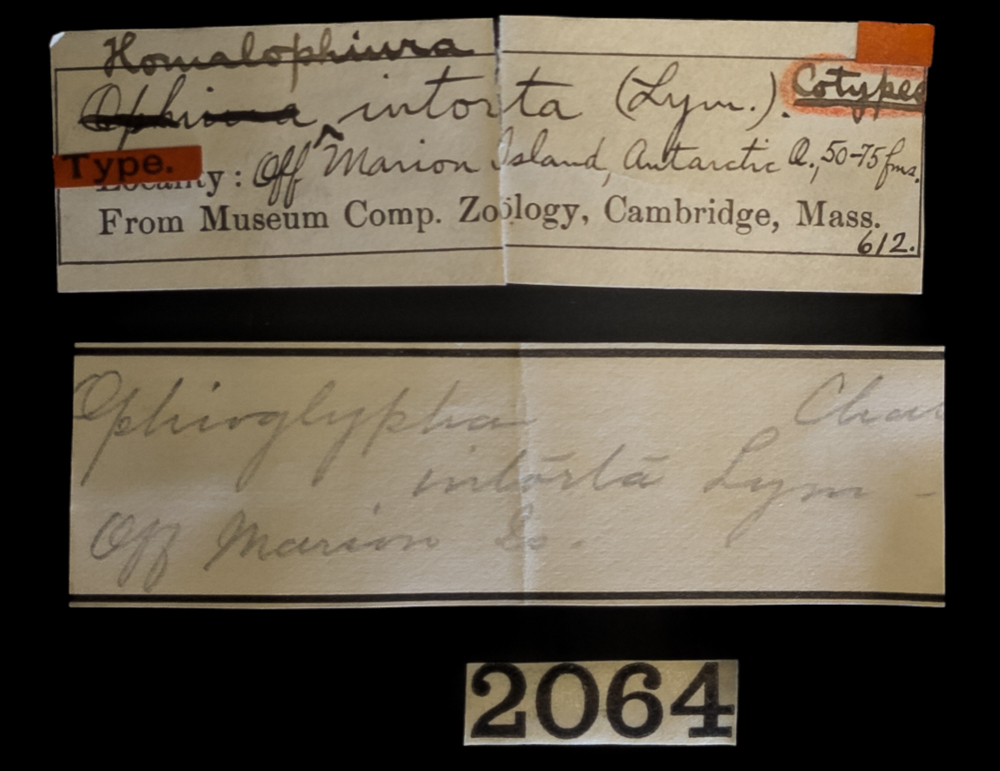 Homalophiura
Ophiura ^ intorta (Lym.). Cotypes
Type.
Locality: Off Marion Island, Antarctic O., 50-75 fms.
From Museum Comp. Zoölogy, Cambridge, Mass.
612.
Ophioglypha Chal
intorta Lym -
Off Marion Is.
2064